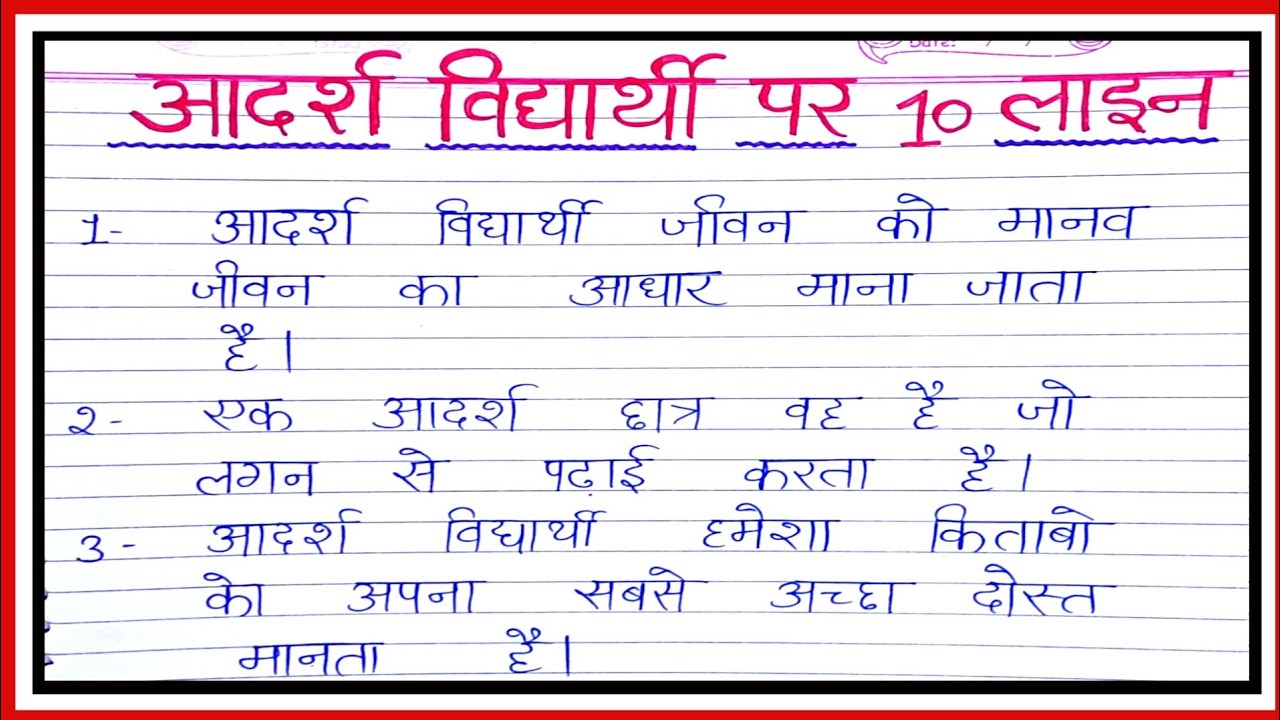 Date: / /
आदर्श विद्यार्थी पर 10 लाइन
1- आदर्श विद्यार्थी जीवन को मानव
जीवन का आधार माना जाता
है।
2- एक आदर्श छात्र वह है जो
लगन से पढ़ाई करता है।
3- आदर्श विद्यार्थी हमेशा किताबो
को अपना सबसे अच्छा दोस्त
मानता है।